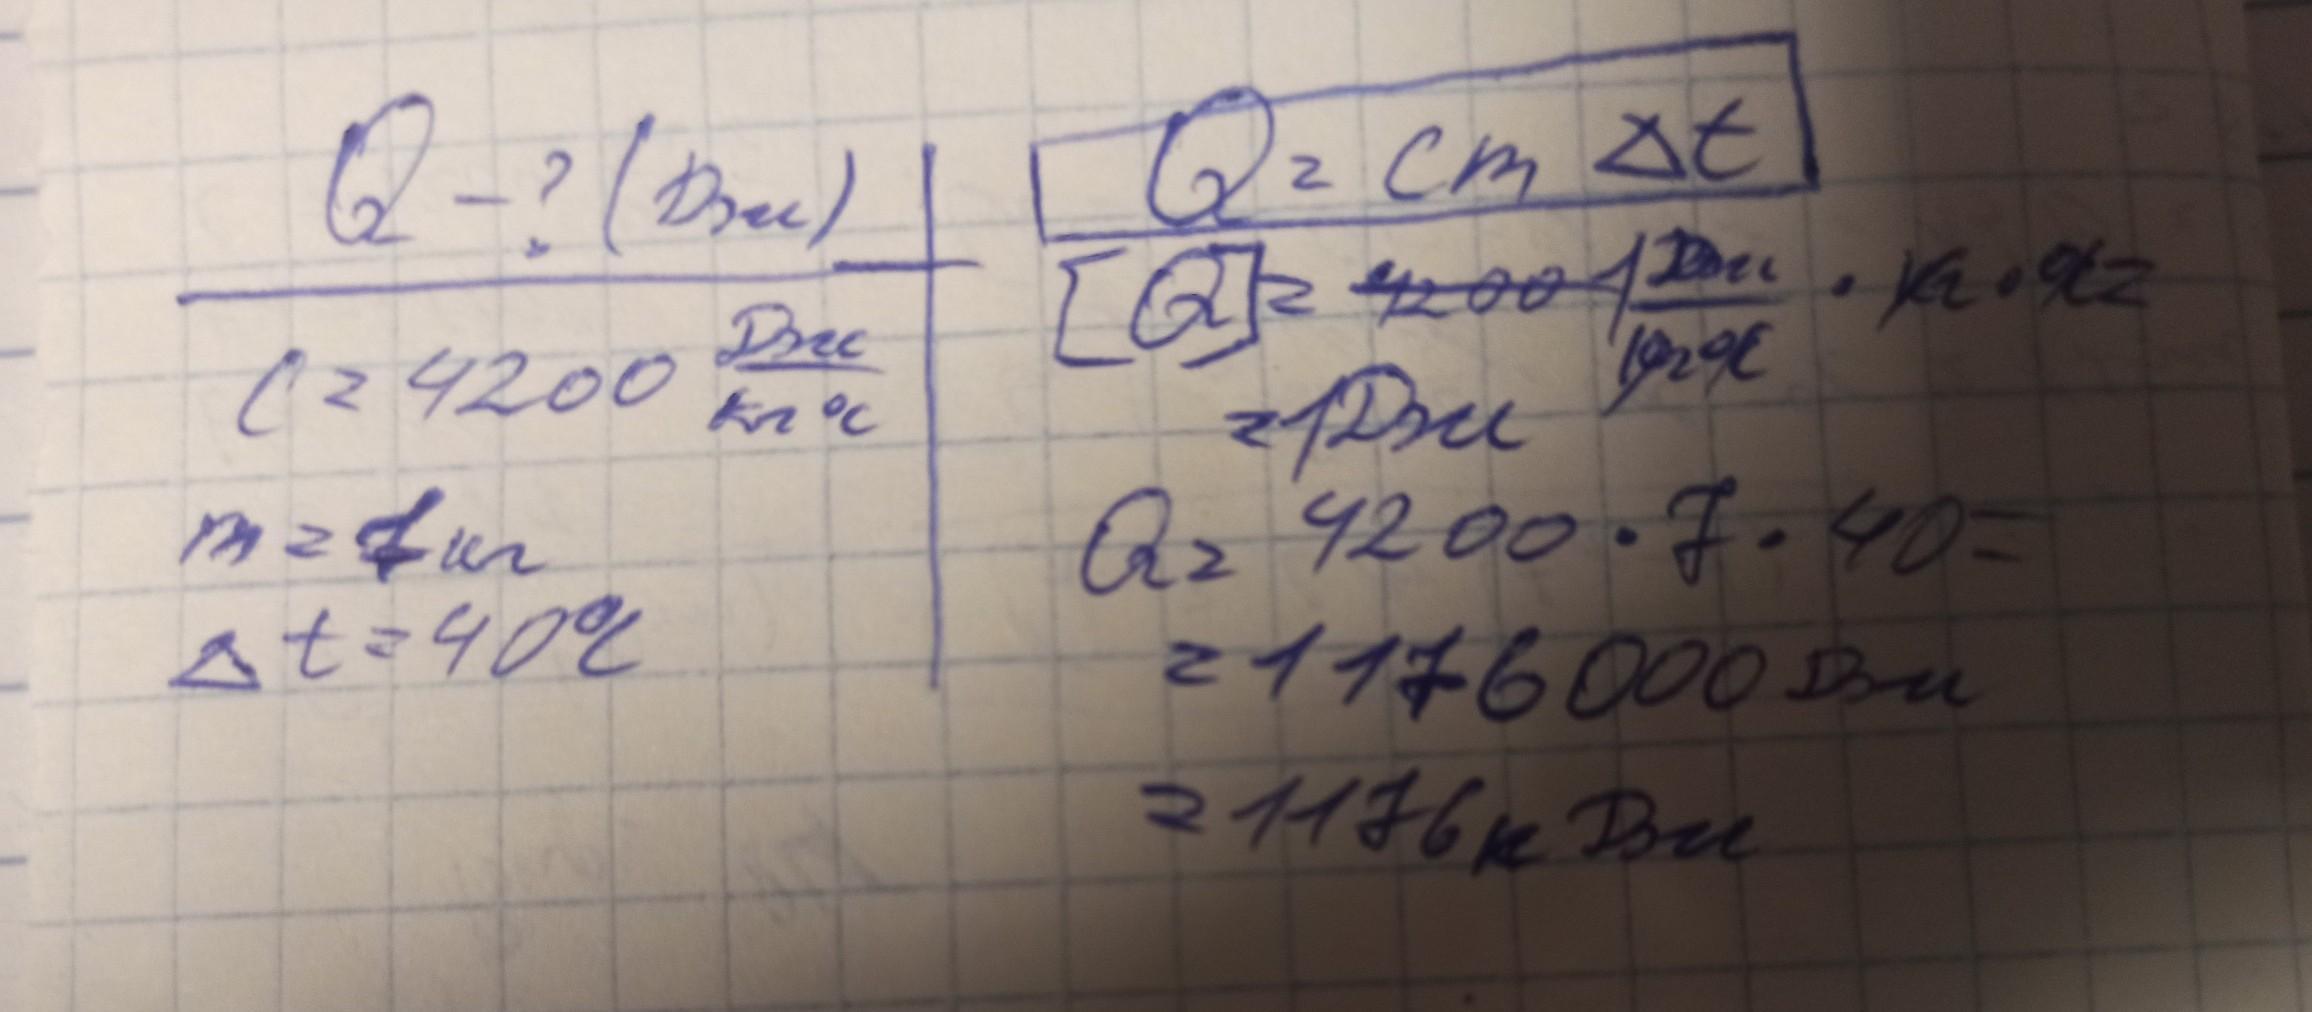 Q - ? (Дж)
c = 4200 Дж/кг°C
m = 7 кг
Δt = 40°C
Q = cm Δt
[Q] = 4200 1 Дж/кг°C · кг · °C =
= 1Дж
Q = 4200 · 7 · 40 =
= 1176000 Дж
= 1176 кДж